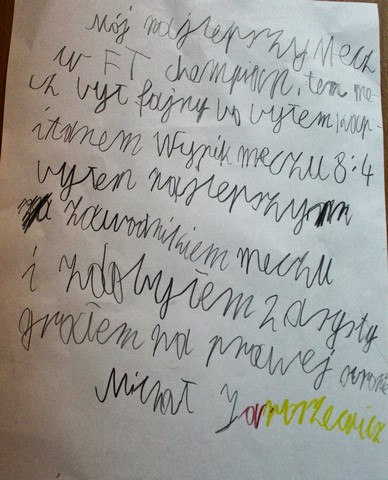 Mój najlepszy Mecz
w FT Champions. ten me-
cz był fajny bo byłem kap-
itanem Wynik meczu 8:4
byłem najlepszym
zawodnikiem meczu
i zdobyłem 2 asysty
grałem na prawej stronie
Michał Jaroszewicz